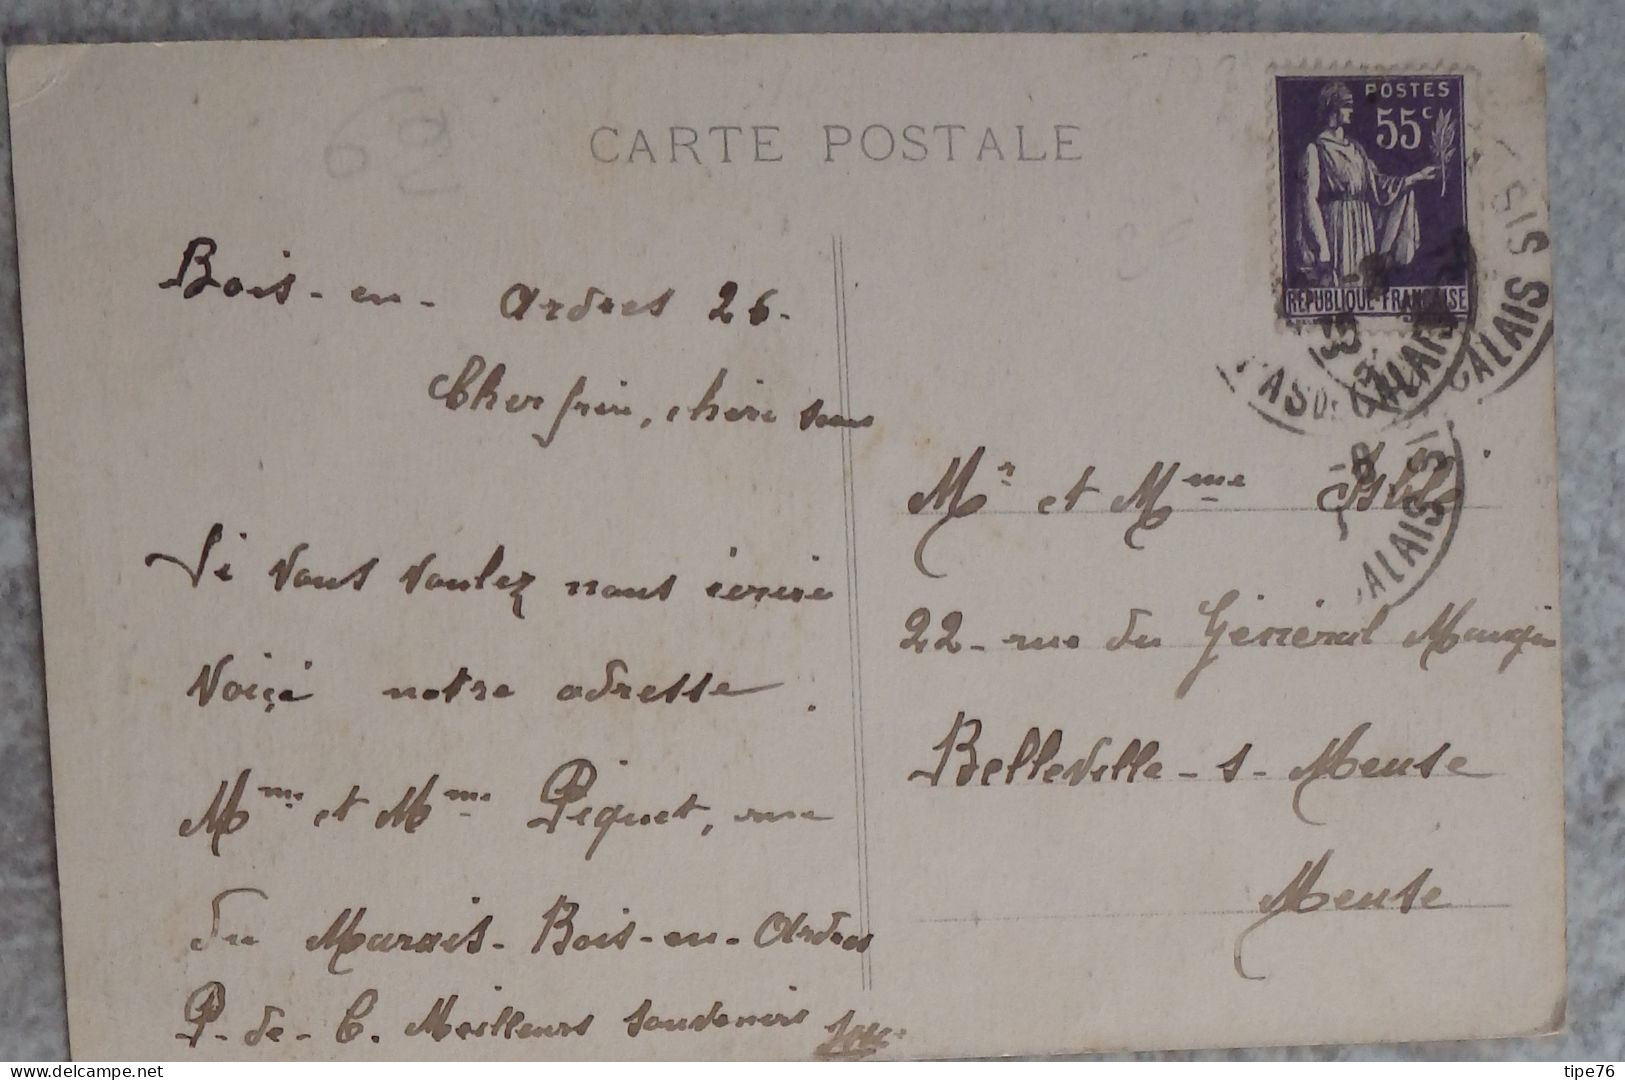 CARTE POSTALE
POSTES
55c
REPUBLIQUE FRANÇAISE
PAS DE CALAIS
CALAIS
CALAIS
Bois-en-Ardres 26-
Cher frère, chère
Si vous voulez nous écrire
Voiçi notre adresse.
Mme et Mme Piquet, rue
du Marais-Bois-en-Ardres
P-de-C. Meilleurs souvenirs
Mr et Mme
22-rue du Général Mangin
Belleville-s-Meuse
Meuse
delcampe.net
tipe76